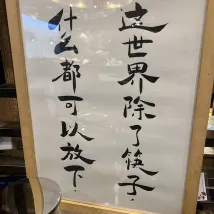 这世界除了筷子.
什么都可以放下